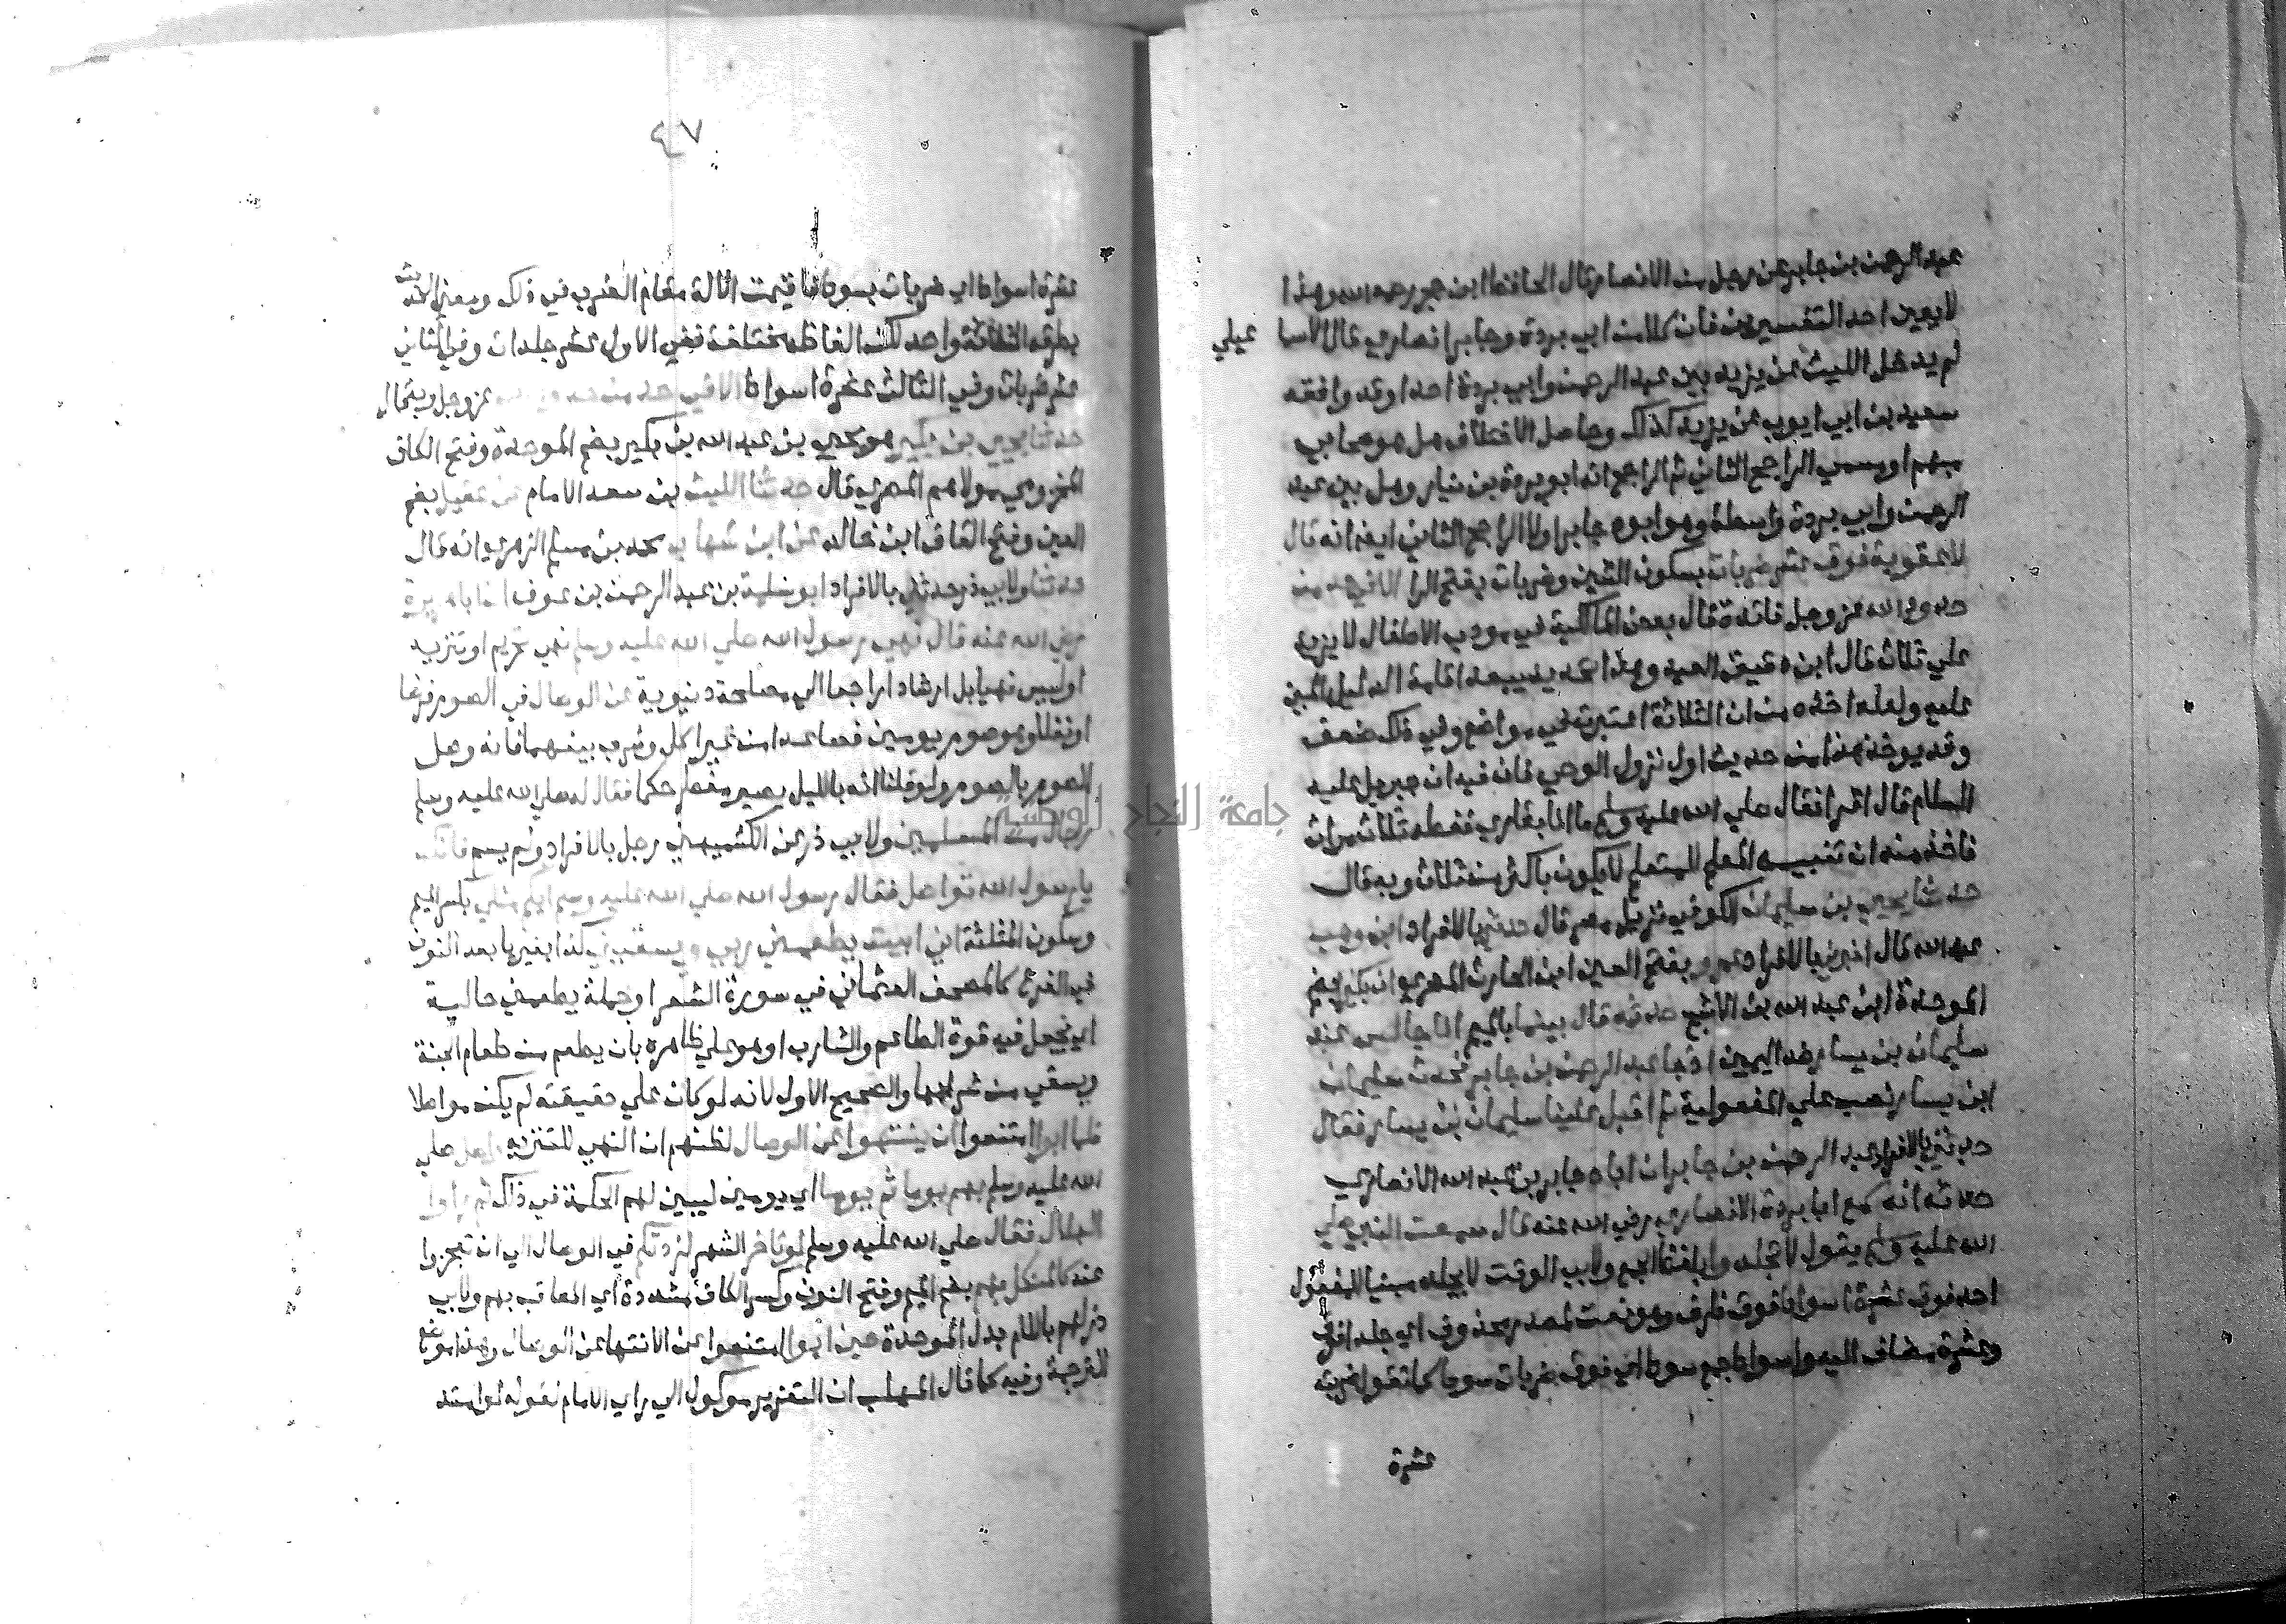 عبد الرحمن بن جابر عن رجل من الانصار قال الحافظ ابن حجر رحمه الله وهذا
لا يعين احد التفسيرين فان كلا من ابي بردة وجابر انصاري قال الاسما عيلي
لم يدخل الليث عن يزيد بين عبد الرحمن وابي بردة احدا وقد وافقه
سعيد بن ابي ايوب عن يزيد كذلك وحاصل الاختلاف هل هو صحابي
مبهم او مسمي الراجح الثاني ثم الراجح انه ابو بردة بن نيار وهل بين عبد
الرحمن وابي بردة واسطة وهو ابوه جابر اولا الراجح الثاني ايضا انه قال
لا عقوبة فوق عشر ضربات بسكون الشين وضربات بفتح الرا الا في حد من
حدود الله عز وجل فائدة قال بعض المالكية في مودب الاطفال لا يزيد
علي ثلاث قال ابن دقيق العيد وهذا تحديد يبعد اقامة الدليل المبين
عليه ولعله اخذه من ان الثلاثة اعتبرت في مواضع وفي ذلك ضعف
وقد يوخذ هذا من حديث اول نزول الوحي فان فيه ان جبريل عليه
السلام قال اقرا فقال صلي الله عليه وسلم ما انا بقاري فغطه ثلاث مرات
فاخذ منه ان تنبيه المعلم للمتعلم لا يكون باكثر من ثلاث وبه قال
حدثنا يحيي بن سليمان الكوفي نزيل مصر قال حدثني بالافراد ابن وهب
عبد الله قال اخبرني بالافراد عمرو بفتح العين ابن الحارث المصري ان بكيرا بضم
الموحدة ابن عبد الله بن الاشج حدثه قال بينما بالميم انا جالس عند
سليمان بن يسار ضد اليمين اذ جا عبد الرحمن بن جابر فحدث سليمان
ابن يسار نصب علي المفعولية ثم اقبل علينا سليمان بن يسار فقال
حدثني بالافراد عبد الرحمن بن جابر ان اباه جابر بن عبد الله الانصاري
حدثه انه سمع ابا بردة الانصاري رضي الله عنه قال سمعت النبي صلي
الله عليه وسلم يقول لا تجلدوا بلفظ الجمع ولابي الوقت لا يجلد مبنيا للمفعول
احد فوق عشرة اسواط فوق ظرف وهو نعت لمصدر محذوف اي جلدا فوق
وعشرة مضاف اليه واسواط جمع سوط اي فوق ضربات سوط كما تقول ضربته
عشرة
٤٧
عشرة اسواط اي ضربات بسوط فاقيمت الآلة مقام الضرب في ذلك ومعني الحديث
بطرقه الثلاثة واحد لكن الفاظه مختلفة ففي الاول عشر جلدات وفي الثاني
عشر ضربات وفي الثالث عشرة اسواط الا في حد من حدود الله عز وجل وبه قال
حدثنا يحيي بن بكير هو يحيي بن عبد الله بن بكير بضم الموحدة وفتح الكاف
المخزومي مولاهم المصري قال حدثنا الليث بن سعد الامام عن عقيل بضم
العين وفتح القاف ابن خالد عن ابن شهاب محمد بن مسلم الزهري انه قال
حدثنا ولابي ذر حدثني بالافراد ابو سلمة بن عبد الرحمن بن عوف ان ابا هريرة
رضي الله عنه قال نهي رسول الله صلي الله عليه وسلم نهي تحريم او تنزيه
او ليس نهيا بل ارشادا راجعا الي مصلحة دنيوية عن الوصال في الصوم فرضا
او نفلا وهو صوم يومين فصاعدا من غير اكل وشرب بينهما فانه وصل
الصوم بالصوم ولو قلنا انه بالليل يصير مفطرا حكما فقال له صلي الله عليه وسلم
رجال من المسلمين ولابي ذر عن الكشميهني رجل بالافراد ولم يسم فانك
يا رسول الله تواصل فقال رسول الله صلي الله عليه وسلم ايكم مثلي بكسر الميم
وسكون المثلثة اني ابيت يطعمني ربي ويسقين كذا بغير يا بعد النون
في الفرع كالمصحف العثماني في سورة الشعرا وجملة يطعمني حالية
اي يجعل فيه قوة الطاعم والشارب او هو علي ظاهره بان يطعم من طعام الجنة
ويسقي من شرابها والصحيح الاول لانه لو كان علي حقيقته لم يكن مواصلا
فلما ابوا امتنعوا ان ينتهوا عن الوصال لظنهم ان النهي للتنزيه واصل صلي
الله عليه وسلم بهم يوما ثم يوما اي يومين ليبين لهم الحكمة في ذلك ثم راوا
الهلال فقال صلي الله عليه وسلم لو تاخر الشهر لزدتكم في الوصال الي ان تعجزوا
عنه كالمنكل بهم بضم الميم وفتح النون وكسر الكاف مشددة اي المعاقب بهم ولابي
ذر لهم باللام بدل الموحدة حين ابوا امتنعوا عن الانتها عن الوصال وهذا موضع
الترجمة وفيه كما قال المهلب ان التعزير موكول الي راي الامام لقوله لو امتد
جامعة النجاح الوطنية